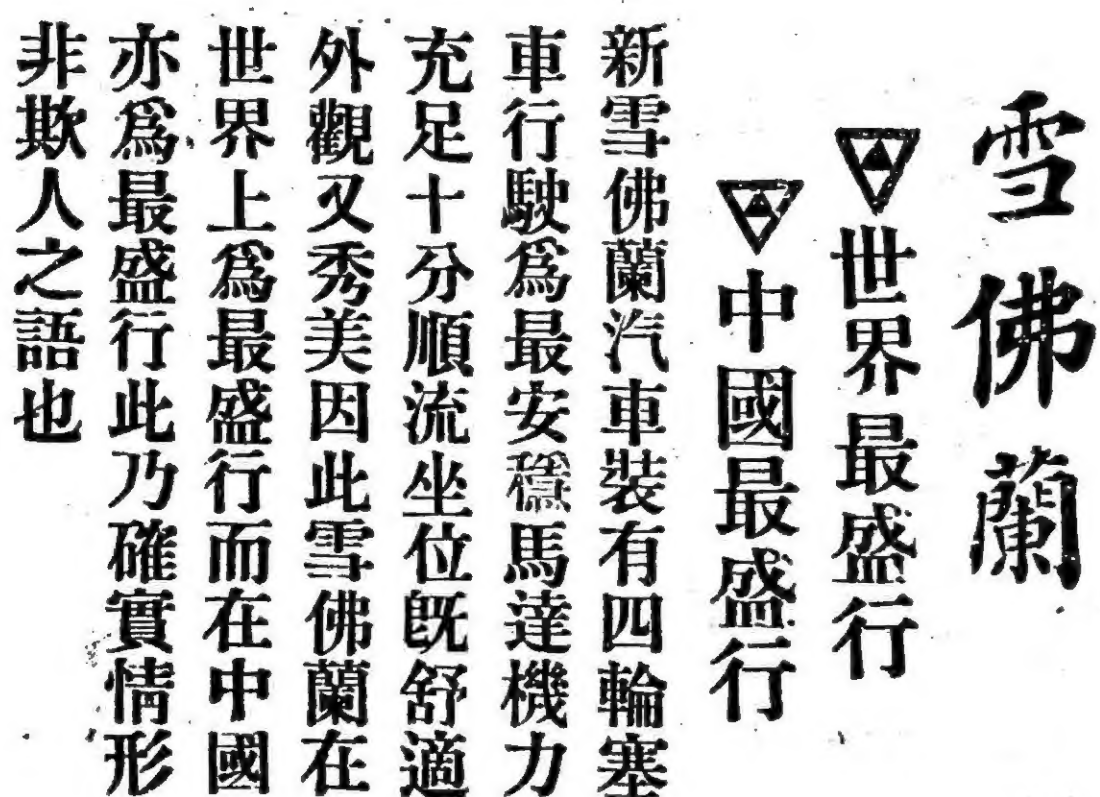 雪佛蘭
世界最盛行
中國最盛行
新雪佛蘭汽車裝有四輪塞
車行駛爲最安穩馬達機力
充足十分順流坐位旣舒適
外觀又秀美因此雪佛蘭在
世界上爲最盛行而在中國
亦爲最盛行此乃確實情形
非欺人之語也